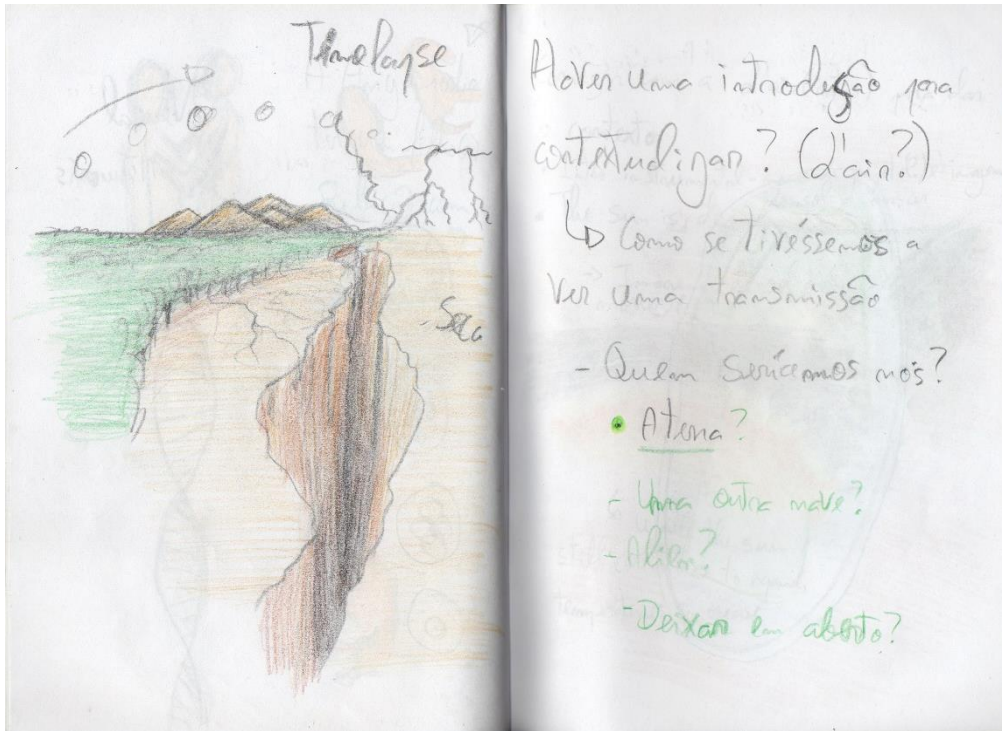 Timelapse
Seca
Haver uma introdução para
contextualizar? (d'ain?)
Como se tivéssemos a
ver uma transmissão
- Quem seríamos nós?
Atena?
- Uma outra nave?
- Alien?
- Deixar em aberto?